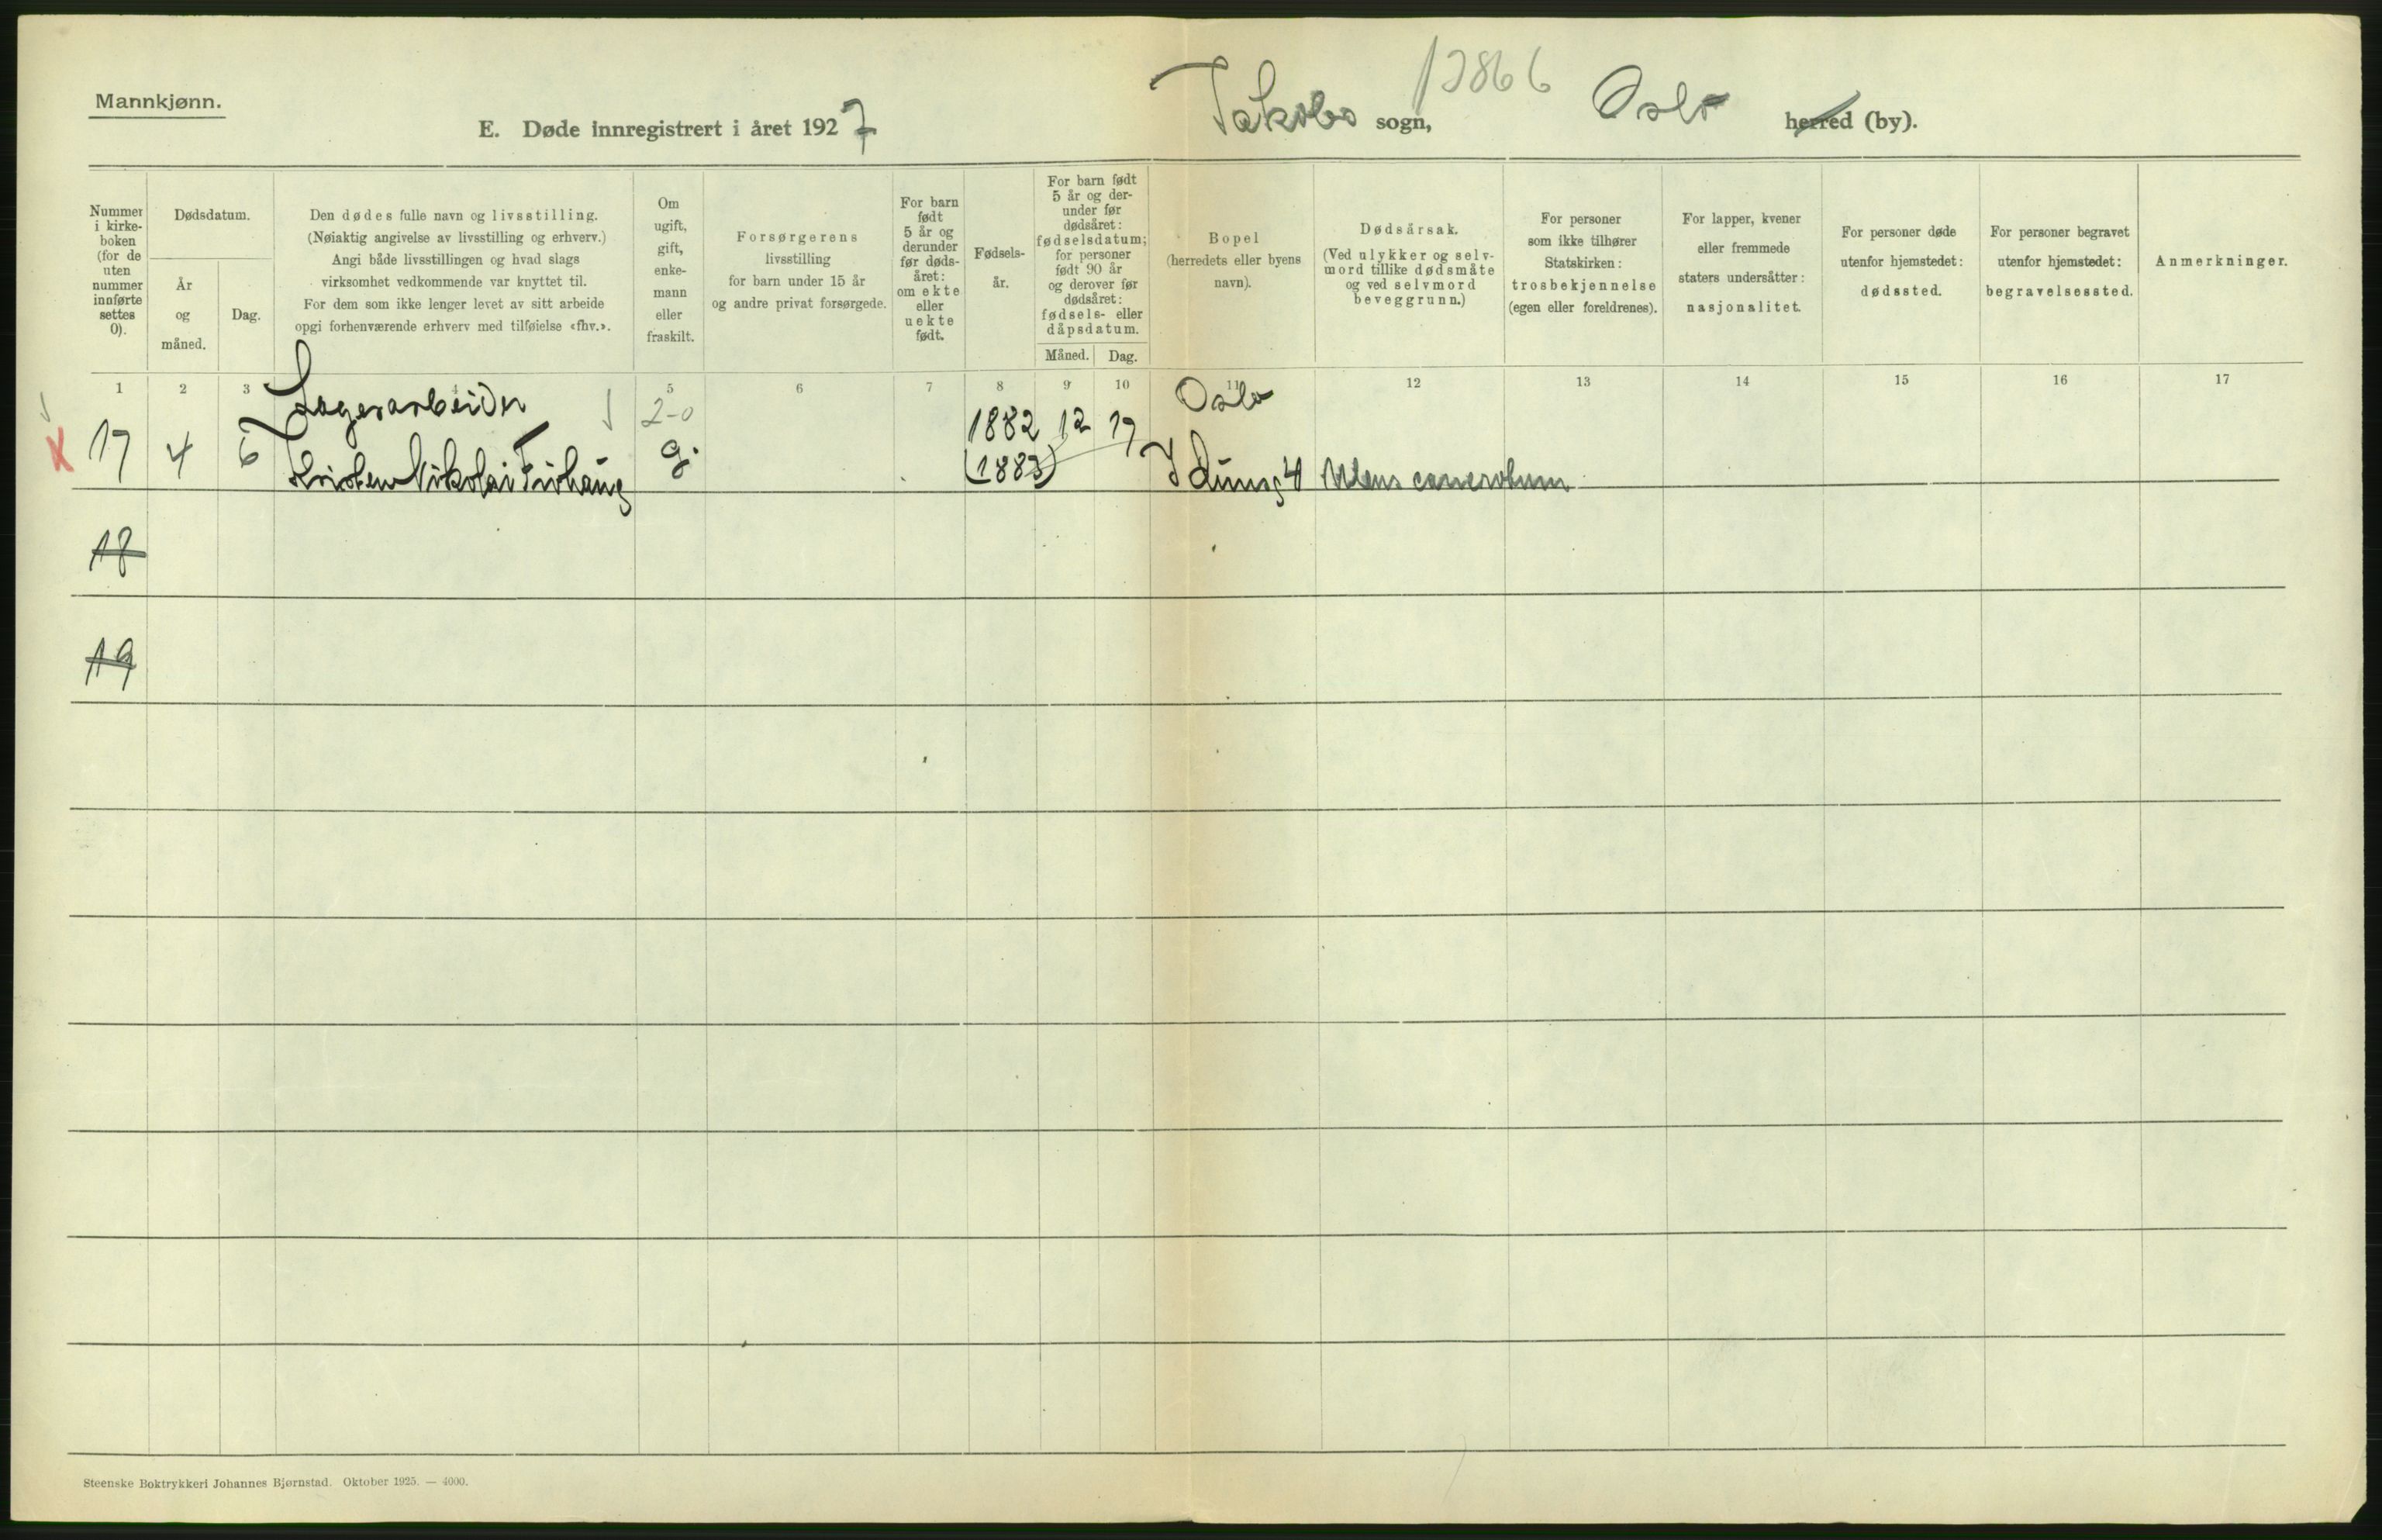 Mannkjønn.
E. Døde innregistrert i året 1927
Jakobs sogn, Oslo herred (by).
Nummer i kirkeboken (for de uten nummer innførte settes 0).
Dødsdatum.
År og måned.
Dag.
Den dødes fulle navn og livsstilling.
(Nøiaktig angivelse av livsstilling og erhverv.)
Angi både livsstillingen og hvad slags
virksomhet vedkommende var knyttet til.
For dem som ikke lenger levet av sitt arbeide
opgi forhenværende erhverv med tilføielse «fhv.».
Om ugift, gift, enkemann eller fraskilt.
Forsørgerens
livsstilling
for barn under 15 år
og andre privat forsørgede.
For barn født 5 år og derunder før dødsåret: om ekte eller uekte født.
Fødselsår.
For barn født 5 år og derunder før dødsåret: fødselsdatum; for personer født 90 år og derover før dødsåret: fødsels- eller dåpsdatum.
Måned. Dag.
Bopel
(herredets eller byens
navn).
Dødsårsak.
(Ved ulykker og selvmord tillike dødsmåte og ved selvmord beveggrunn.)
For personer
som ikke tilhører
Statskirken:
trosbekjennelse
(egen eller foreldrenes).
For lapper, kvener
eller fremmede
staters undersåtter:
nasjonalitet.
For personer døde
utenfor hjemstedet:
dødssted.
For personer begravet
utenfor hjemstedet:
begravelsessted.
Anmerkninger.
1 2 3 4 5 6 7 8 9 10 11 12 13 14 15 16 17
Lagerarbeider 2-0 1882 12 17 Oslo
17 4 6 Kristen Nikolai g. (1883) Iduns g 4 Ulcus
18
19
Steenske Boktrykkeri Johannes Bjørnstad. Oktober 1925. — 4000.